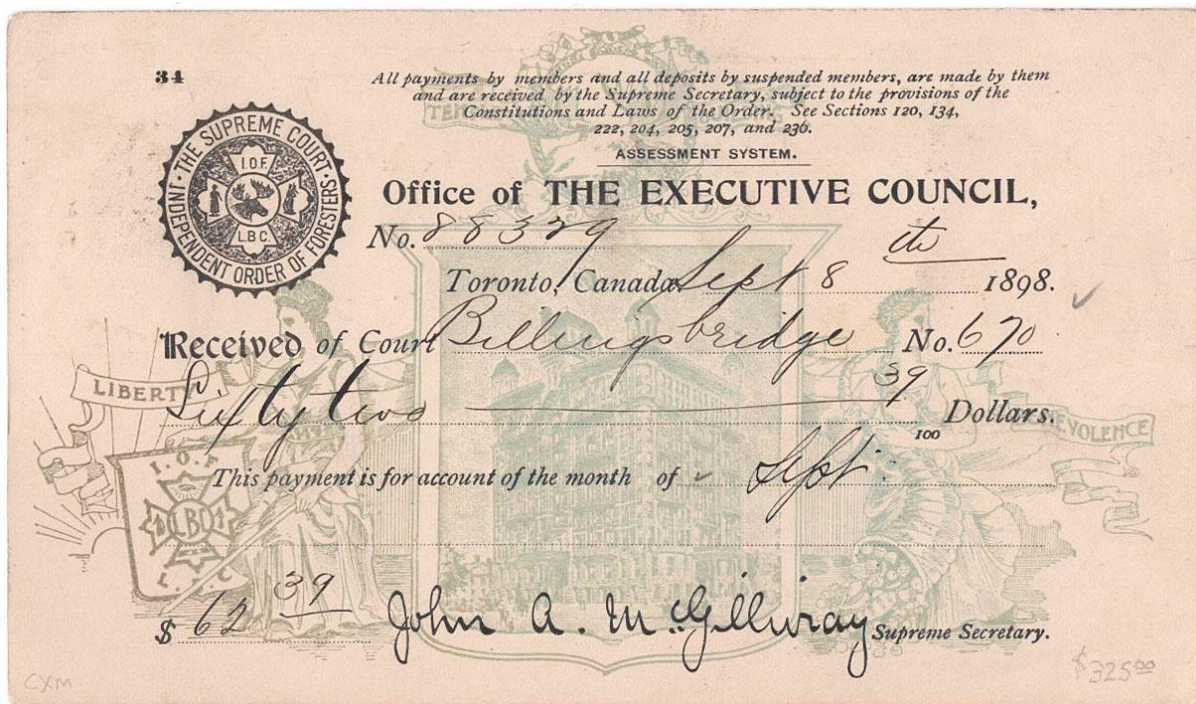 34
All payments by members and all deposits by suspended members, are made by them
and are received by the Supreme Secretary, subject to the provisions of the
Constitutions and Laws of the Order. See Sections 120, 134,
222, 204, 205, 207, and 236.
ASSESSMENT SYSTEM.
THE SUPREME COURT · INDEPENDENT ORDER OF FORESTERS ·
I.O.F.
L.B.C.
Office of THE EXECUTIVE COUNCIL,
No. 88329
Toronto, Canada Sept 8 th 1898.
Received of Court Billingsbridge No. 670
LIBERTY
Sixty two 39/100 Dollars.
BENEVOLENCE
This payment is for account of the month of Sept.
I.O.F
LBC
L. C
$ 62 39 John A. McGillivray Supreme Secretary.
CXM
$325.00